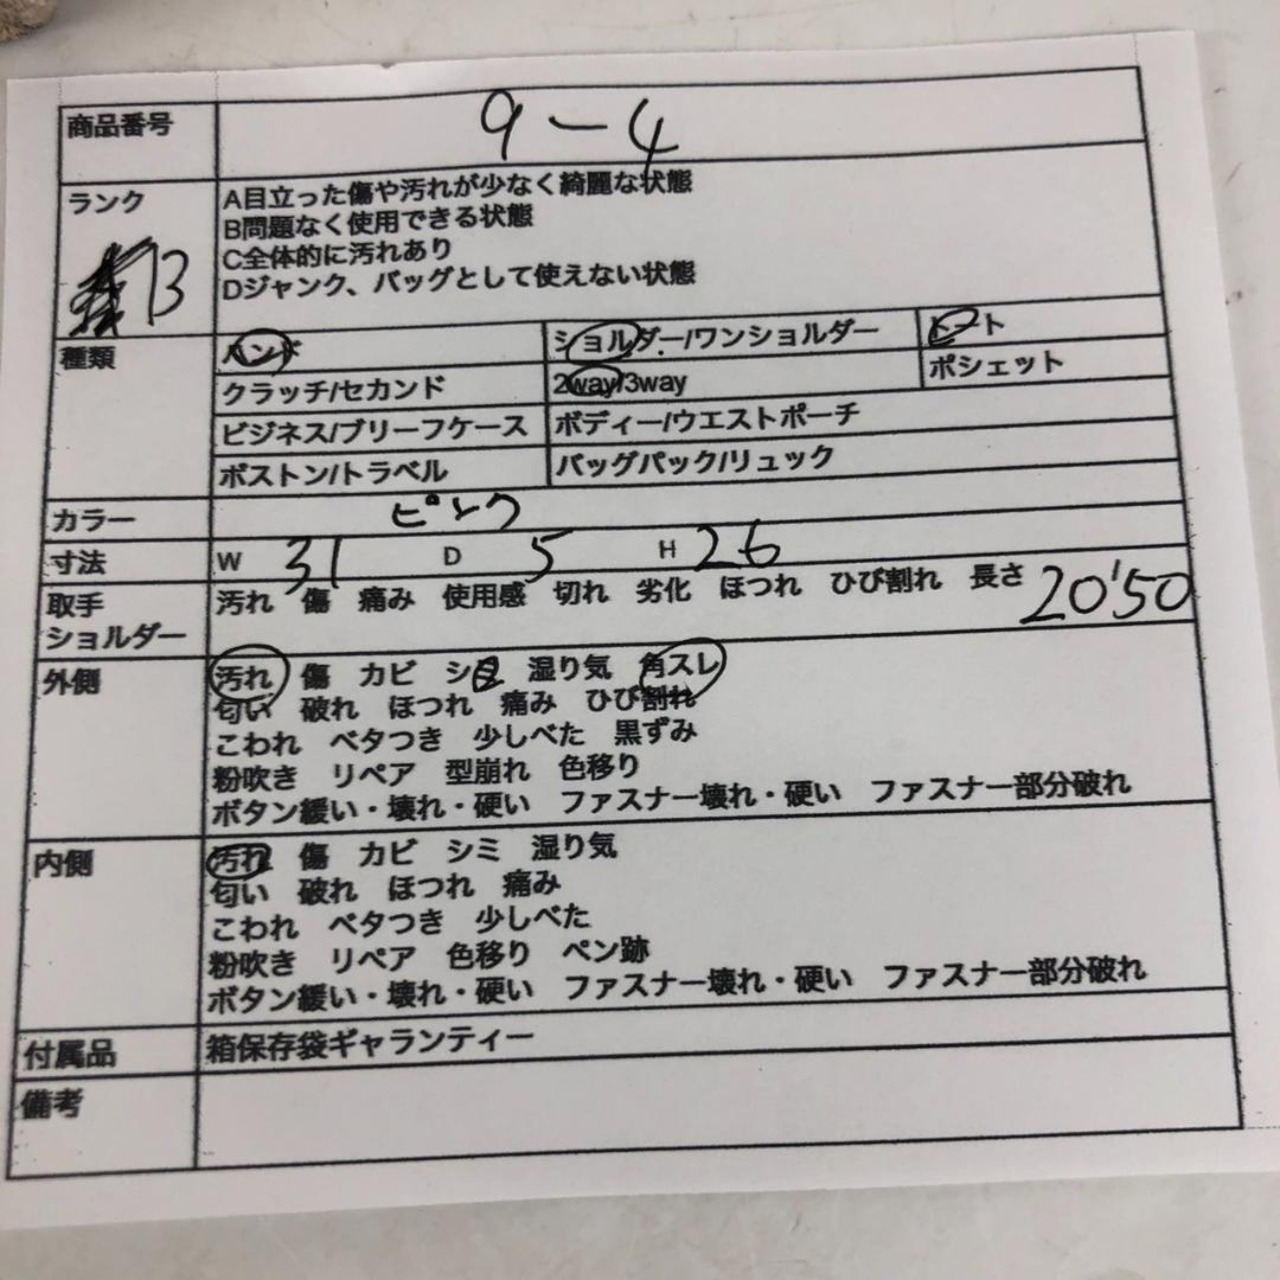 商品番号 9-4
ランク B
A目立った傷や汚れが少なく綺麗な状態
B問題なく使用できる状態
C全体的に汚れあり
Dジャンク、バッグとして使えない状態
種類 ハンド ショルダー/ワンショルダー トート
クラッチ/セカンド 2way/3way ポシェット
ビジネス/ブリーフケース ボディー/ウエストポーチ
ボストン/トラベル バッグパック/リュック
カラー ピンク
寸法 W 31 D 5 H 26
取手 汚れ 傷 痛み 使用感 切れ 劣化 ほつれ ひび割れ 長さ 20'50
ショルダー
外側 汚れ 傷 カビ シミ 湿り気 角スレ
匂い 破れ ほつれ 痛み ひび割れ
こわれ ベタつき 少しべた 黒ずみ
粉吹き リペア 型崩れ 色移り
ボタン緩い・壊れ・硬い ファスナー壊れ・硬い ファスナー部分破れ
内側 汚れ 傷 カビ シミ 湿り気
匂い 破れ ほつれ 痛み
こわれ ベタつき 少しべた
粉吹き リペア 色移り ペン跡
ボタン緩い・壊れ・硬い ファスナー壊れ・硬い ファスナー部分破れ
付属品 箱保存袋ギャランティー
備考